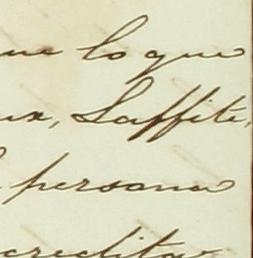 que lo que
ux, Laffite,
persona
acredita